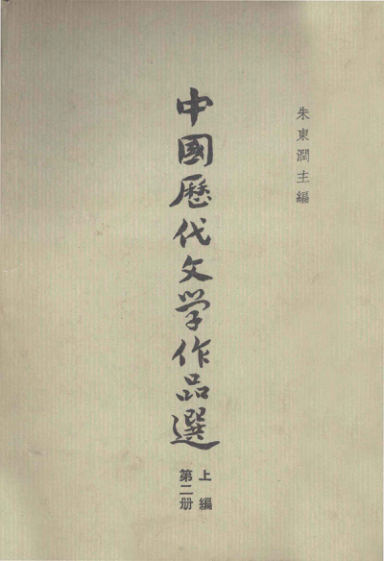 朱東潤主編
中國歷代文学作品選
上編
第二册